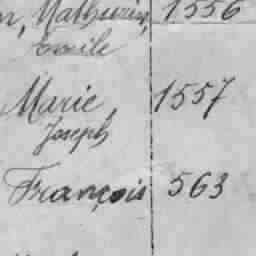 n, Mathurin, 1556
Emile
Marie 1557
Joseph
François 563